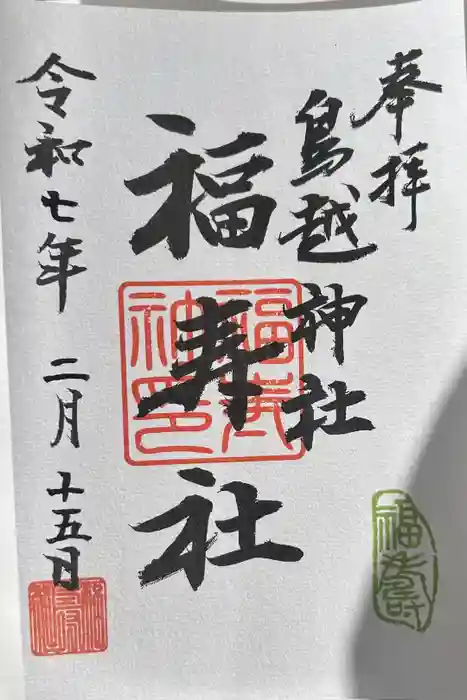 奉拝
鳥越神社
福寿社
令和七年 二月 十五日
福寿